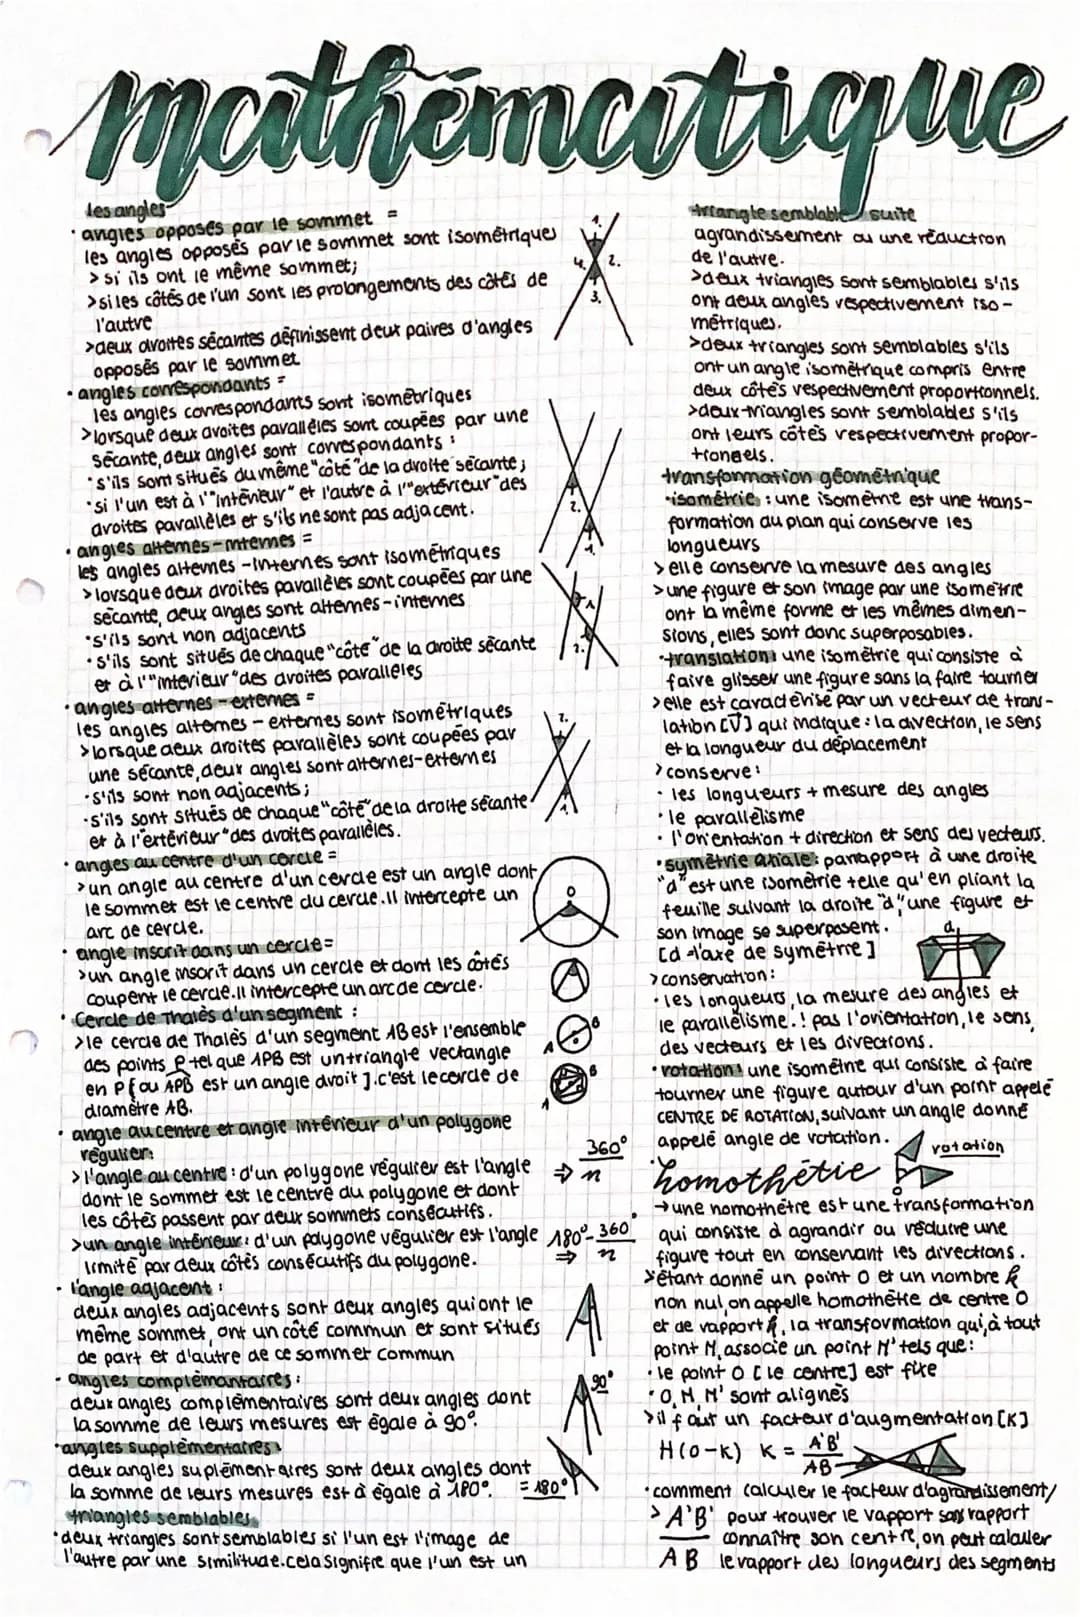 mathématique
les angles
· angles opposés par le sommet =
les angles opposés par le sommet sont isométriques
> si ils ont le même sommet;
> si les côtés de l'un sont les prolongements des côtés de
l'autre
> deux droites sécantes définissent deux paires d'angles
opposés par le sommet
1.
2.
3.
4.
· angles correspondants =
les angles correspondants sont isométriques
> lorsque deux droites parallèles sont coupées par une
sécante, deux angles sont correspondants :
· s'ils sont situés du même "côté" de la droite sécante;
· si l'un est à l'"intérieur" et l'autre à l'"extérieur" des
droites parallèles et s'ils ne sont pas adjacent.
2.
1.
· angles alternes-internes =
les angles alternes-internes sont isométriques
> lorsque deux droites parallèles sont coupées par une
sécante, deux angles sont alternes-internes
· s'ils sont non adjacents
· s'ils sont situés de chaque "côté" de la droite sécante
et à l'"intérieur" des droites parallèles
1
2.
· angles alternes-externes =
les angles alternes-externes sont isométriques
> lorsque deux droites parallèles sont coupées par
une sécante, deux angles sont alternes-externes
· s'ils sont non adjacents;
· s'ils sont situés de chaque "côté" de la droite sécante
et à l'extérieur" des droites parallèles.
2.
1.
· angles au centre d'un cercle =
> un angle au centre d'un cercle est un angle dont
le sommet est le centre du cercle. Il intercepte un
arc de cercle.
O
· angle inscrit dans un cercle =
> un angle inscrit dans un cercle et dont les côtés
coupent le cercle. Il intercepte un arc de cercle.
· Cercle de Thalès d'un segment :
> le cercle de Thalès d'un segment AB est l'ensemble
des points P tel que APB est un triangle rectangle
en P [ou APB est un angle droit]. c'est le cercle de
diamètre AB.
A
B
A
B
· angle au centre et angle intérieur d'un polygone
régulier:
> l'angle au centre : d'un polygone régulier est l'angle
dont le sommet est le centre du polygone et dont
les côtés passent par deux sommets consécutifs.
⇒ 360°
n
> un angle intérieur : d'un polygone régulier est l'angle
limité par deux côtés consécutifs du polygone.
180° - 360°
⇒ n
· l'angle adjacent :
deux angles adjacents sont deux angles qui ont le
même sommet, ont un côté commun et sont situés
de part et d'autre de ce sommet commun
· angles complémantaires :
deux angles complémentaires sont deux angles dont
la somme de leurs mesures est égale à 90°.
90°
· angles supplémentaires
deux angles suplémentaires sont deux angles dont
la somme de leurs mesures est à égale à 180°.
= 180°
triangles semblables
· deux triangles sont semblables si l'un est l'image de
l'autre par une similitude. cela signifie que l'un est un
triangle semblable suite
agrandissement ou une réduction
de l'autre.
> deux triangles sont semblables s'ils
ont deux angles respectivement iso-
métriques.
> deux triangles sont semblables s'ils
ont un angle isométrique compris entre
deux côtés respectivement proportionnels.
> deux triangles sont semblables s'ils
ont leurs côtés respectivement propor-
tionaels.
transformation géométrique
· isométrie : une isométrie est une trans-
formation du plan qui conserve les
longueurs
> elle conserve la mesure des angles
> une figure et son image par une isométrie
ont la même forme et les mêmes dimen-
sions, elles sont donc superposables.
· translation : une isométrie qui consiste à
faire glisser une figure sans la faire tourner
> elle est caractérisé par un vecteur de trans-
lation [V] qui indique : la direction, le sens
et la longueur du déplacement
> conserve :
· les longueurs + mesure des angles
· le parallélisme
· l'orientation + direction et sens des vecteurs.
· symétrie axiale : par rapport à une droite
"d" est une isométrie telle qu'en pliant la
feuille suivant la droite "d", une figure et
son image se superposent.
[d = l'axe de symétrie]
d
> conservation :
· les longueurs, la mesure des angles et
le parallélisme. ! pas l'orientation, le sens
des vecteurs et les directions.
· rotation : une isométrie qui consiste à faire
tourner une figure autour d'un point appelé
CENTRE DE ROTATION, suivant un angle donné
appelé angle de rotation.
rotation
O
· homothétie
→ une homothétie est une transformation
qui consiste à agrandir ou réduire une
figure tout en conservant les directions.
> étant donné un point O et un nombre k
non nul, on appelle homothétie de centre O
et de rapport k, la transformation qui, à tout
point M, associe un point M' tels que :
· le point O [le centre] est fixe
· O, M, M' sont alignés
> il faut un facteur d'augmentation [K]
H(O-K) K = A'B'
AB
· comment calculer le facteur d'agrandissement/
> A'B' pour trouver le rapport sans rapport
connaître son centre, on peut calculer
AB le rapport des longueurs des segments